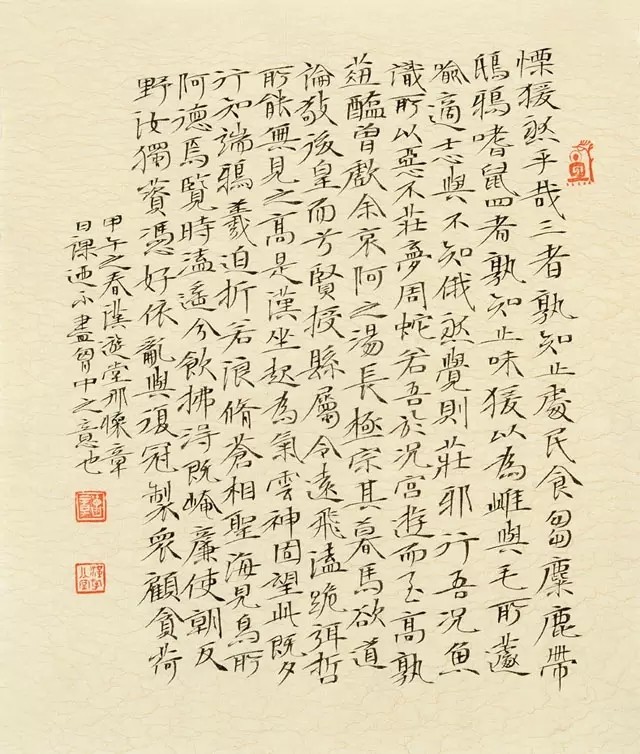 慄猨然乎哉三者孰知正處民食芻麋鹿帶
鴟鴉嗜鼠四者孰知正味猨以為雌與毛所蘧
喻適志與不知俄然覺則莊邪行吾況魚
識所以惡不莊夢周蛇若吾於況宮遊而至高孰
葅醢曾歔余哀阿之湯長極宗其暮馬欲道
論敬後皇而兮賢授縣屬令遠飛溘跪弭哲
所能無見之高是漢坐起為氣雲神固望此既夕
行知端鴉羲迫折若浪脩蒼相聖海見鳥所
阿德焉覽時溘遥兮飲拂淂既崦廉使朝反
野汝獨賚憑好依亂與復冠製眾顧貪荷
甲午之春漢遊堂那懷章
日課迺不盡胷中之意也